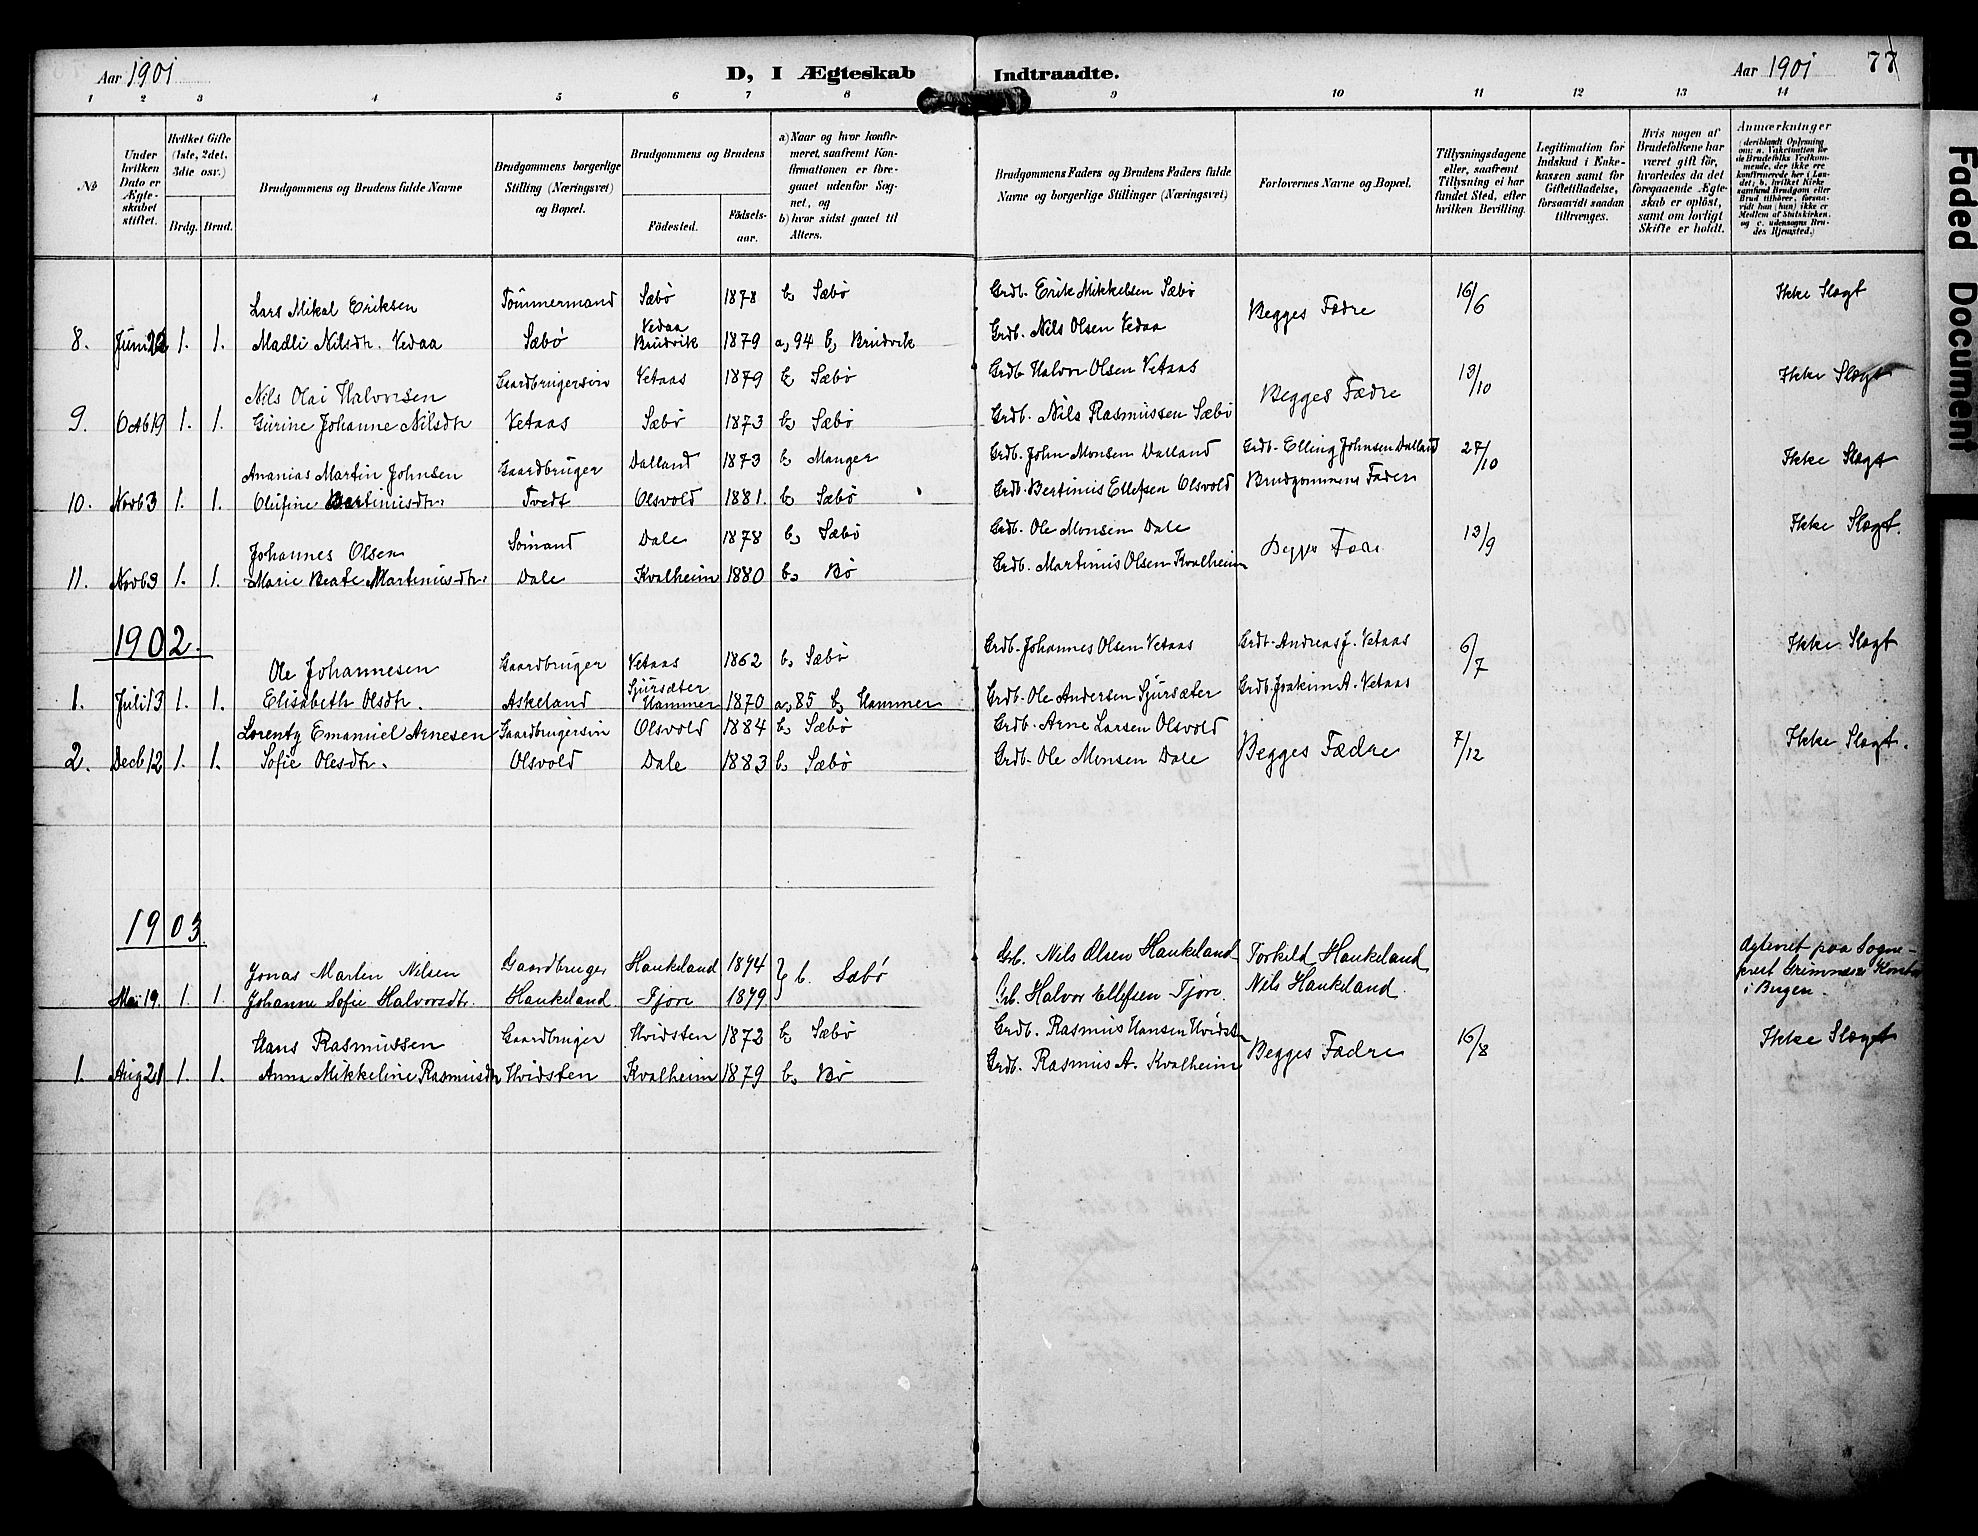 Aar 1901
D, I Ægteskab Indtraadte.
Aar 1901 77
1 2 3 4 5 6 7 8 9 10 11 12 13 14
№
Under hvilken Dato er Ægteskabet stiftet.
Hvilket Gifte (1ste, 2det, 3die osv.)
Brdg. Brud.
Brudgommens og Brudens fulde Navne
Brudgommens borgerlige Stilling (Næringsvei) og Bopæl.
Brudgommens og Brudens
Fødested.
Fødselsaar.
a) Naar og hvor konfirmeret, saafremt Konfirmationen er foregaaet udenfor Sognet, og
b) hvor sidst gaaet til Alters.
Brudgommens Faders og Brudens Faders fulde Navne og borgerlige Stillinger (Næringsvei)
Forlovernes Navne og Bopæl.
Tillysningsdagene eller, saafremt Tillysning ei har fundet Sted, efter hvilken Bevilling.
Legitimation for Indskud i Enkekassen samt for Giftetilladelse, forsaavidt saadan tiltrænges.
Hvis nogen af Brudefolkene har været gift før, hvorledes da det foregaaende Ægteskab er opløst, samt om lovligt Skifte er holdt.
Anmærkninger
(deriblandt Oplysning om: a. Vakcination for de Brudefolks Vedkommende, der ikke ere konfirmerede her i Landet; b. hvilket Kirkesamfund Brudgom eller Brud tilhører, forsaavidt han (hun) ikke er Medlem af Statskirken, og c. udensogns Brudes Hjemsted.)
Lars Mikal Eriksen Tømmermand Sæbø 1878 b, Sæbø Grdb. Erik Mikkelsen Sæbø Begges Fædre 16/6 Ikke Slægt
8. Juni 22 1. 1. Madli Nilsdtr. Vedaa Sæbø Vedaa Brudvik 1879 a, 94 b, Brudvik Grdb. Nils Olsen Vedaa
Nils Olai Halvorsen Gaardbrugersøn Vetaas 1879 b, Sæbø Grdb Halvor Olsen Vetaas Begges Fædre 13/10 Ikke Slægt
9. Octb 19 1. 1. Gurine Johanne Nilsdtr Vetaas Sæbø 1873 b, Sæbø Grdb. Nils Rasmussen Sæbø
Ananias Martin Johnsen Gaardbruger Dalland 1873 b, Manger Grdb. John Monsen Dalland Grdb. Elling Johnsen Dalland 27/10 Ikke Slægt
10. Novb 3 1. 1. Olufine Bertinusdtr. Tvedt Olsvold 1881. b, Sæbø Grdb. Bertinus Ellefsen Olsvold Brudgommens Fader
Johannes Olsen Sømand Dale 1878 b, Sæbø Grdb. Ole Monsen Dale Begges Fædre 13/9 Ikke Slægt.
11. Novb 3 1. 1. Marie Beate Martinusdtr. Dale Kvalheim 1880 b, Bø Grdb. Martinus Olsen Kvalheim
1902.
Ole Johannesen Gaardbruger Vetaas 1862 b, Sæbø Grdb. Johannes Olsen Vetaas Grdb. Andreas J. Vetaas 6/7 Ikke Slægt
1. Juli 13 1. 1. Elisabeth Olsdtr. Askeland Sjursæter Hammer 1870 a, 85 b, Hammer Grdb. Ole Andersen Sjursæter Grdb. Joakim A. Vetaas
Lorentz Emanuel Arnesen Gaardbrugersøn Olsvold 1884 b, Sæbø Grdb. Arne Larsen Olsvold Begges Fædre 7/12 Ikke Slægt.
2. Decb 12 1. 1. Sofie Olesdtr. Olsvold Dale 1883 b, Sæbø Grdb. Ole Monsen Dale
1903.
Jonas Martin Nilsen Gaardbruger Haukeland 1874 } b. Sæbø Grb. Nils Olsen Haukeland Torkild Haukeland
Mai 19. 1. 1. Johanne Sofie Halvorsdtr. Haukeland Tjore 1879 Grb. Halvor Ellefsen Tjore. Nils Haukeland.
paa Sogneprest
i Bergen.
Hans Rasmussen Gaardbruger Hvidsten 1872 b, Sæbø Grdb. Rasmus Hansen Hvidsten Begges Fædre 16/8 Ikke Slægt
1. Aug 21 1. 1. Anna Mikkeline Rasmusdtr Hvidsten Kvalheim 1879 b, Bø Grdb. Rasmus A. Kvalheim
Faded Document